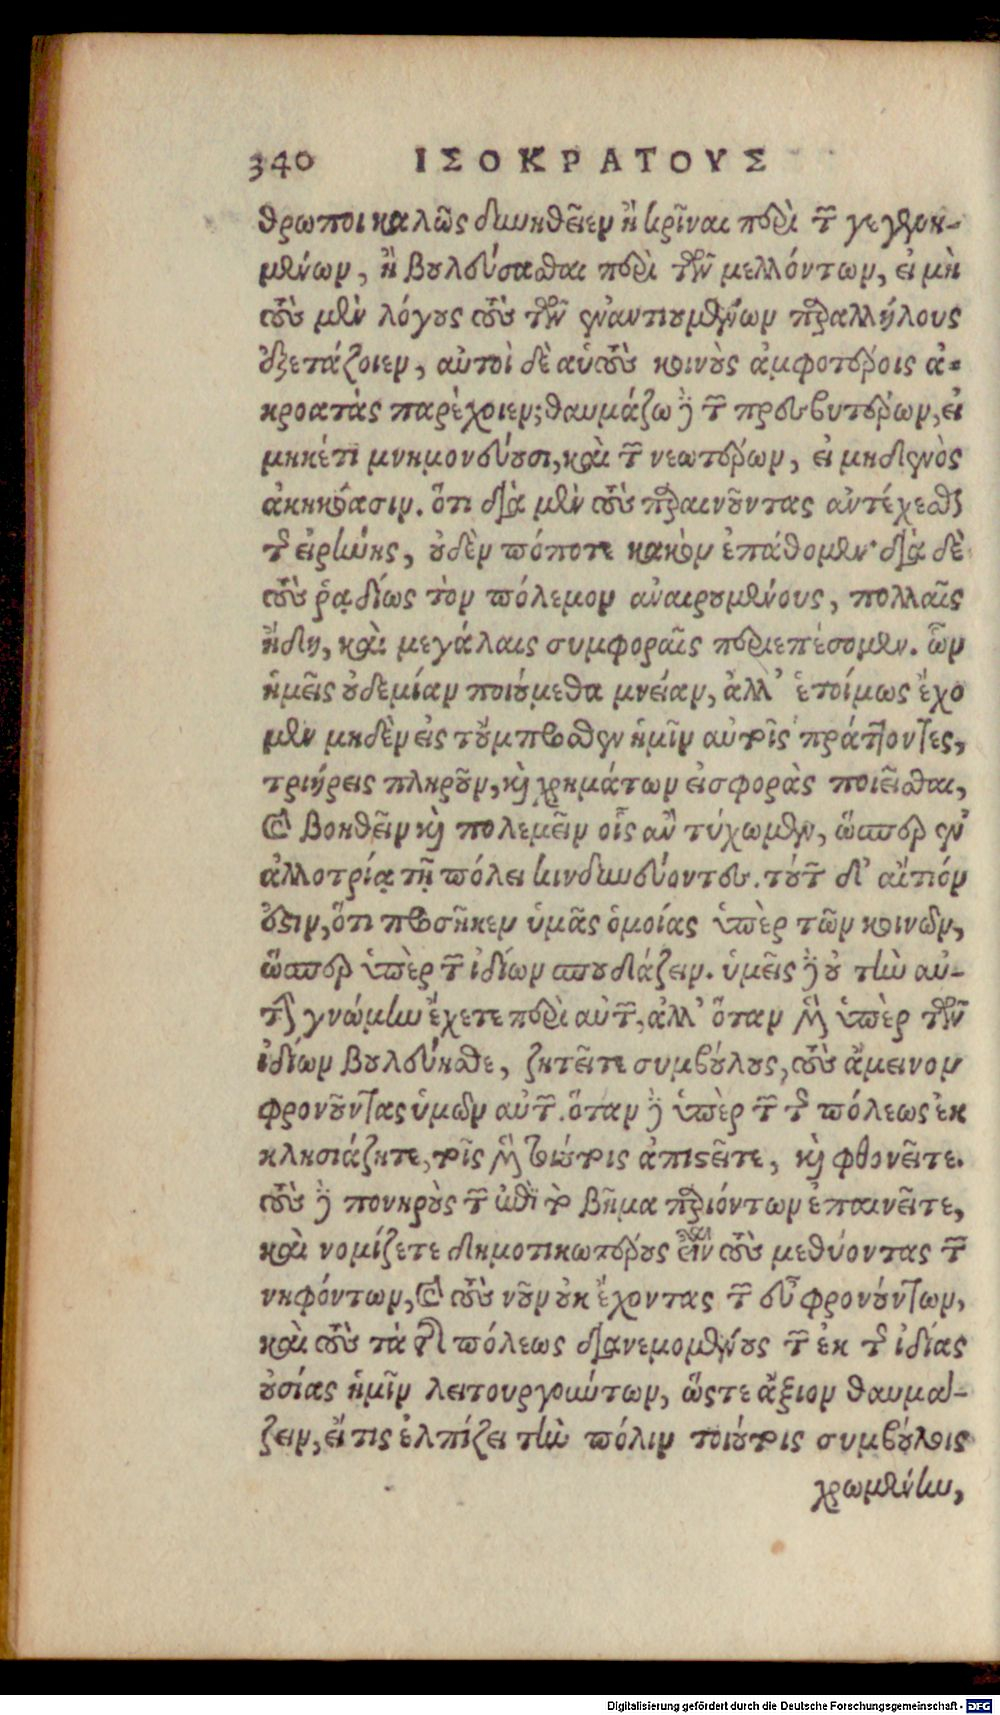 340 ΙΣΟΚΡΑΤΟΥΣ
θρωποι καλῶς δυνηθεῖεν ἢ κρῖναι περὶ τῶν γεγενη-
μένων, ἢ βουλεύσασθαι περὶ τῶν μελλόντων, εἰ μὴ
τοὺς μὲν λόγους τοὺς τῶν ἐναντιουμένων παραλλήλους
ἐξετάζοιεν, αὐτοὶ δὲ αὑτοὺς κοινοὺς ἀμφοτέροις ἀ-
κροατὰς παρέχοιεν; θαυμάζω δὲ τῶν πρεσβυτέρων, εἰ
μηκέτι μνημονεύουσι, καὶ τῶν νεωτέρων, εἰ μηδενὸς
ἀκηκόασιν. ὅτι διὰ μὲν τοὺς παραινοῦντας ἀντέχεσθαι
τῆς εἰρήνης, οὐδὲν πόποτε κακὸν ἐπάθομεν· διὰ δὲ
τοὺς ῥᾳδίως τὸν πόλεμον ἀναιρουμένους, πολλαῖς
ἤδη, καὶ μεγάλαις συμφοραῖς περιεπέσομεν. ὧν
ἡμεῖς οὐδεμίαν ποιούμεθα μνείαν, ἀλλ' ἑτοίμως ἔχο
μεν μηδὲν εἰς τοὔμπροσθεν ἡμῖν αὐτοῖς πράττοντες,
τριήρεις πληροῦν, καὶ χρημάτων εἰσφορὰς ποιεῖσθαι,
καὶ βοηθεῖν καὶ πολεμεῖν οἷς ἂν τύχωμεν, ὥσπερ ἐν
ἀλλοτρίᾳ τῇ πόλει κινδυνεύοντες. τούτων δ' αἴτιόν
ἐστιν, ὅτι προσῆκεν ὑμᾶς ὁμοίας ὑπὲρ τῶν κοινῶν,
ὥσπερ ὑπὲρ τῶν ἰδίων σπουδάζειν. ὑμεῖς δὲ οὐ τὴν αὐ-
τὴν γνώμην ἔχετε περὶ αὐτῶν, ἀλλ' ὅταν μὲν ὑπὲρ τῶν
ἰδίων βουλεύησθε, ζητεῖτε συμβούλους, τοὺς ἄμεινον
φρονοῦντας ὑμῶν αὐτῶν. ὅταν δὲ ὑπὲρ τῶν τῆς πόλεως ἐκ
κλησιάζητε, τοῖς μὲν τοιούτοις ἀπιστεῖτε, καὶ φθονεῖτε.
τοὺς δὲ πονηροὺς τῶν ἐπὶ τὸ βῆμα παριόντων ἐπαινεῖτε,
καὶ νομίζετε δημοτικωτέρους εἶναι τοὺς μεθύοντας τῶν
νηφόντων, καὶ τοὺς νοῦν οὐκ ἔχοντας τῶν εὖ φρονούντων,
καὶ τοὺς τὰ τῆς πόλεως διανεμομένους τῶν ἐκ τῆς ἰδίας
οὐσίας ἡμῖν λειτουργούντων, ὥστε ἄξιον θαυμά-
ζειν, εἴ τις ἐλπίζει τὴν πόλιν τοιούτοις συμβούλοις
χρωμένην,
Digitalisierung gefördert durch die Deutsche Forschungsgemeinschaft - DFG